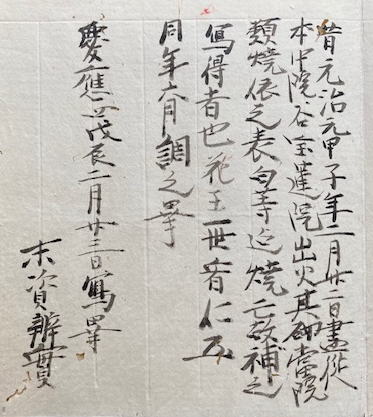 昔元治元甲子年二月廿一日晝従
本中院谷宝蓮院出火其砌當院
類焼依之表白等迄焼亡故補之
寫得者也花王一世者仁五
同年六月調之畢
慶應四戊辰二月廿三日寫畢
末資辨實